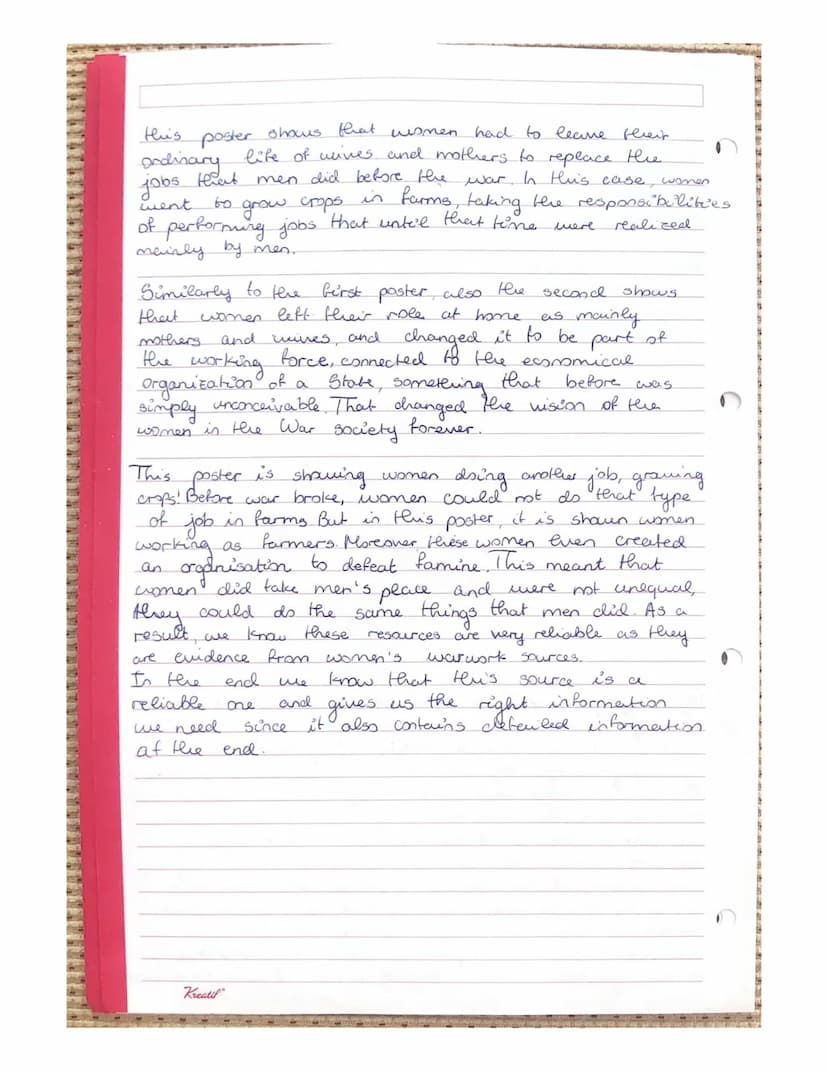 this poster shows that women had to leave their
ordinary life of wives and mothers to replace the
jobs that men did before the war. In this case, women
went to grow crops in farms, taking the responsibilities
of performing jobs that until that time were realized
mainly by men.
Similarly to the first poster, also the second shows
that women left their role at home as mainly
mothers and wives, and changed it to be part of
the working force, connected to the economical
organization of a State, something that before was
simply unconceivable. That changed the vision of the
women in the War society forever.
This poster is showing women doing another job, growing
crops! Before war broke, women could not do that type
of job in farms. But in this poster, it is shown women
working as farmers. Moreover, these women even created
an organisation to defeat famine. This meant that
women did take men's place and were not unequal,
they could do the same things that men did. As a
result, we know these resources are very reliable as they
are evidence from women's warwork sources.
In the end we know that this source is a
reliable one and gives us the right information
we need since it also contains detailed information
at the end.
Kreatif